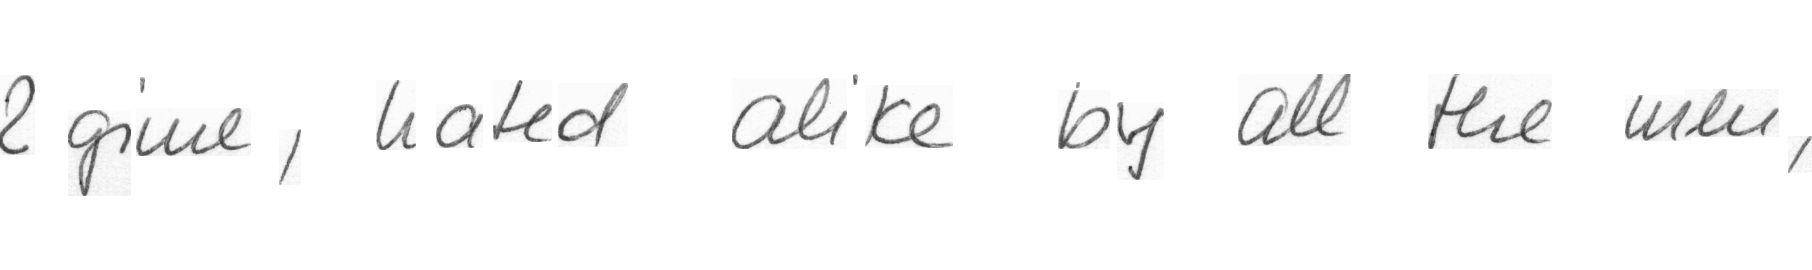 2 gime, hated alike by all the men,